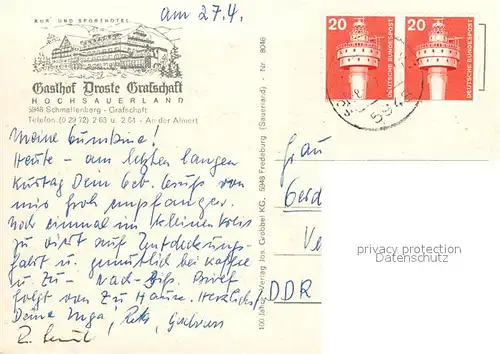 am 27.4.
KUR- UND SPORTHOTEL
Gasthof Droste Grafschaft
HOCHSAUERLAND
5948 Schmallenberg - Grafschaft
Telefon (0 29 72) 2 63 u. 2 64 - An der Almert
Meine
Heute - am letzten langen
Kurtag Dein Geb. Gruß von
mir froh empfangen.
Noch einmal im kleinen Kreis
zu viert auf Entdeckungs-
fahrt u. gemütlich bei Kaffee
u. Zu- Nach- Brief
folgt von Zu Hause. Herzlichst
Deine Inga,
100 Jahre Verlag Jos. Grobbel KG, 5948 Fredeburg (Sauerland) - Nr. 8046
20
DEUTSCHE BUNDESPOST
20
DEUTSCHE BUNDESPOST
Frau
Gerd
DDR
privacy protection
Datenschutz